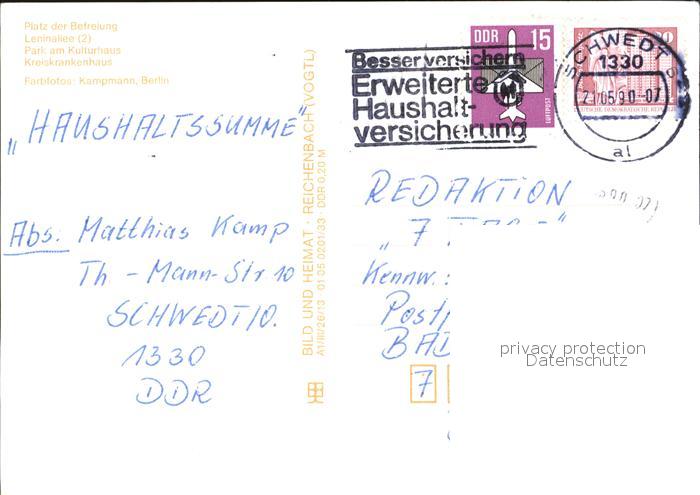 Platz der Befreiung
Leninallee (2)
Park am Kulturhaus
Kreiskrankenhaus
Farbfotos: Kampmann, Berlin
„HAUSHALTSSUMME“
Abs: Matthias Kamp
Th-Mann-Str 10
SCHWEDT/O.
1330
DDR
BILD UND HEIMAT · REICHENBACH (VOGTL)
A1/III/26/13 01 05 0201/33 · DDR 0,20 M
DDR 15
LUFTPOST
Besser versichern
Erweiterte
Haushalt-
versicherung
SCHWEDT
1330
al
REDAKTION
„7
Kennw.:
Post
BAD
7
privacy protection
Datenschutz